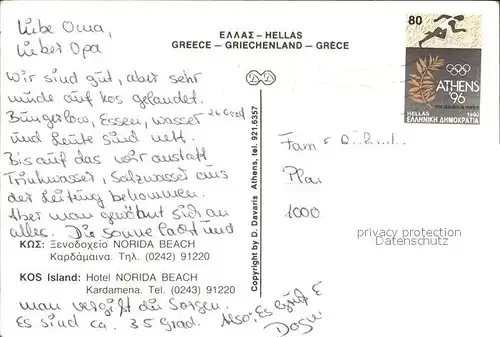 Liebe Oma,
Lieber Opa
Wir sind gut, aber sehr
müde auf Kos gelandet.
Bungerlow, Essen, Wasser 26 Grad
und Leute sind nett.
Bis auf das wir anstatt
Trinkwasser, Salzwasser aus
der Leitung bekommen.
Aber man gewöhnt sich an
alles. Die Sonne lacht und
ΚΩΣ: Ξενοδοχείο NORIDA BEACH
Καρδάμαινα. Τηλ. (0242) 91220
KOS Island: Hotel NORIDA BEACH
Kardamena. Tel. (0243) 91220
man vergißt die Sorgen.
Es sind ca. 35 Grad. Also: Es Grüßt E
ΕΛΛΑΣ - HELLAS
GREECE - GRIECHENLAND - GRÈCE
Copyright by D. Davaris Athens, tel. 921.6357
80
ATHENS
'96
HELLAS
ΕΛΛΗΝΙΚΗ ΔΗΜΟΚΡΑΤΙΑ
Fam
Pla
1000
privacy protection
Datenschutz